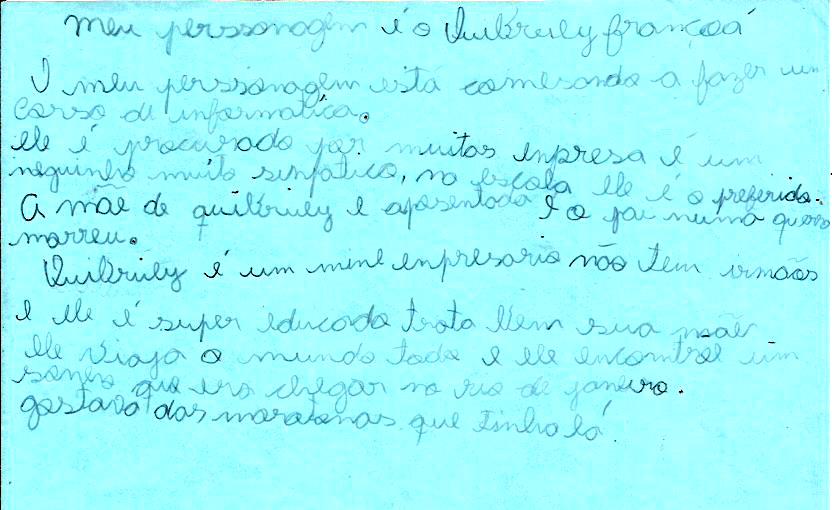 meu perssonagem é o Quikruly françoá
O meu perssonagem está comesando a fazer um
corso de informatica.
ele é procurado por muitas enpresa é um
neguinho muito sinpatico, na escola ele é o preferido.
A mãe de quikruly e aposentada e o pai numa
morreu.
Quikruly é um mine enpresario não tem irmãos
e ele é super educado trata bem sua mãe
ele viaja o mundo todo e ele encontrol um
sonho que era chegar no rio de janeiro.
gostava das maratonas que tinha lá